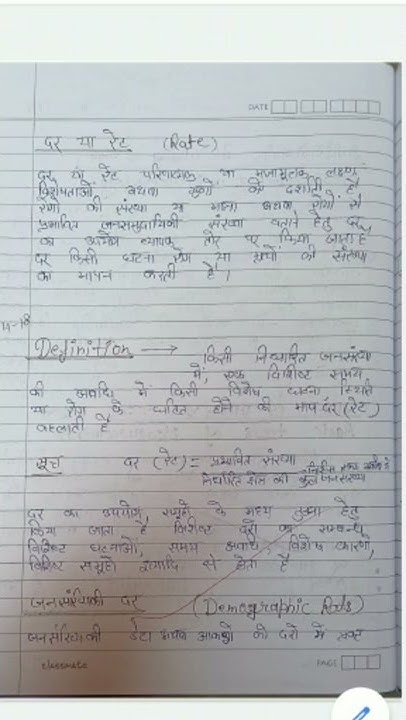 DATE
दर या रेट (Rate)
दर या रेट परिणात्मक या मात्रामूलक लक्षण
विशेषताओं अथवा गुणों को दर्शाती है
रोगों की संख्या या मात्रा अथवा रोगों से
प्रभावित जनसमुदायिकी संख्या बताने हेतु दर
का उपयोग व्यापक तौर पर किया जाता है
दर किसी घटना रोग या की संख्या
का मापन करती है ।
14-18
Definition → किसी निर्धारित जनसंख्या
में, एक विशिष्ट समय
की अवधि में किसी विशेष घटना स्थिति
या रोग के घटित होने की माप दर (रेट)
कहलाती है
सूत्र दर (रेट) = प्रभावित संख्या
निर्धारित क्षेत्र की कुल जनसंख्या
दर का उपयोग, समूहों के मध्य तुलना हेतु
किया जाता है विशिष्ट दरों का सम्बन्ध
विशिष्ट घटनाओं, समय अवधि, विशेष कारणों,
विशिष्ट समूहों इत्यादि से होता है
जनसंख्यिकी दर (Demographic Rods)
जनसंख्यिकी डेटा अथवा आकडों को दरों में व्यक्त
classmate
PAGE